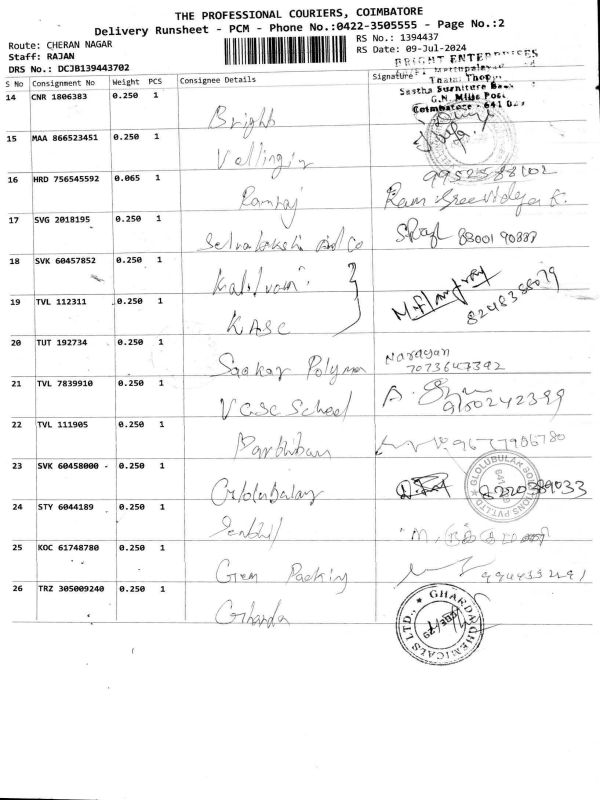 THE PROFESSIONAL COURIERS, COIMBATORE
Delivery Runsheet - PCM - Phone No.:0422-3505555 - Page No.:2
Route: CHERAN NAGAR
RS No.: 1394437
Staff: RAJAN
RS Date: 09-Jul-2024
DRS No.: DCJB139443702
BRIGHT ENTERPRISES
S No Consignment No Weight PCS Consignee Details Signature
Sastha Furniture
G.N. Mills Post
Coimbatore - 641 029
14 CNR 1806383 0.250 1 Bright
15 MAA 866523451 0.250 1 Vellingir
16 HRD 756545592 0.065 1 Ramraj Ram Sreevidya K.
9952588102
17 SVG 2018195 0.250 1 Selvalakshi And Co 88001 90887
18 SVK 60457852 0.250 1
8248358079
19 TVL 112311 0.250 1 KASC
20 TUT 192734 0.250 1 Saakar Polymer Narayan
7073647392
21 TVL 7839910 0.250 1 VGSC School 9150242399
22 TVL 111905 0.250 1 Parthiban
23 SVK 60458000 - 0.250 1 Glolubular 8220389033
GLOLUBULAR SOLUTIONS PVT.LTD
24 STY 6044189 0.250 1 Senthil
25 KOC 61748780 0.250 1 Gem Packing
26 TRZ 305009240 0.250 1 Gharda
GHARDA CHEMICALS LTD.,